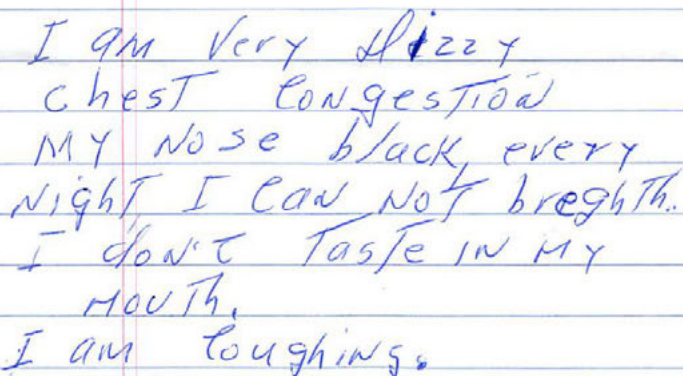 I am very dizzy
chest congestion
My nose black, every
night I can not breghth.
I don't taste in my
mouth.
I am coughing.